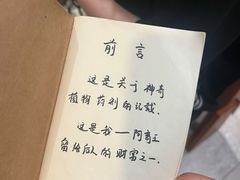 前言
这是关于神奇
植物药剂的记载.
这是我——阿奇王
留给后人的财富之一.